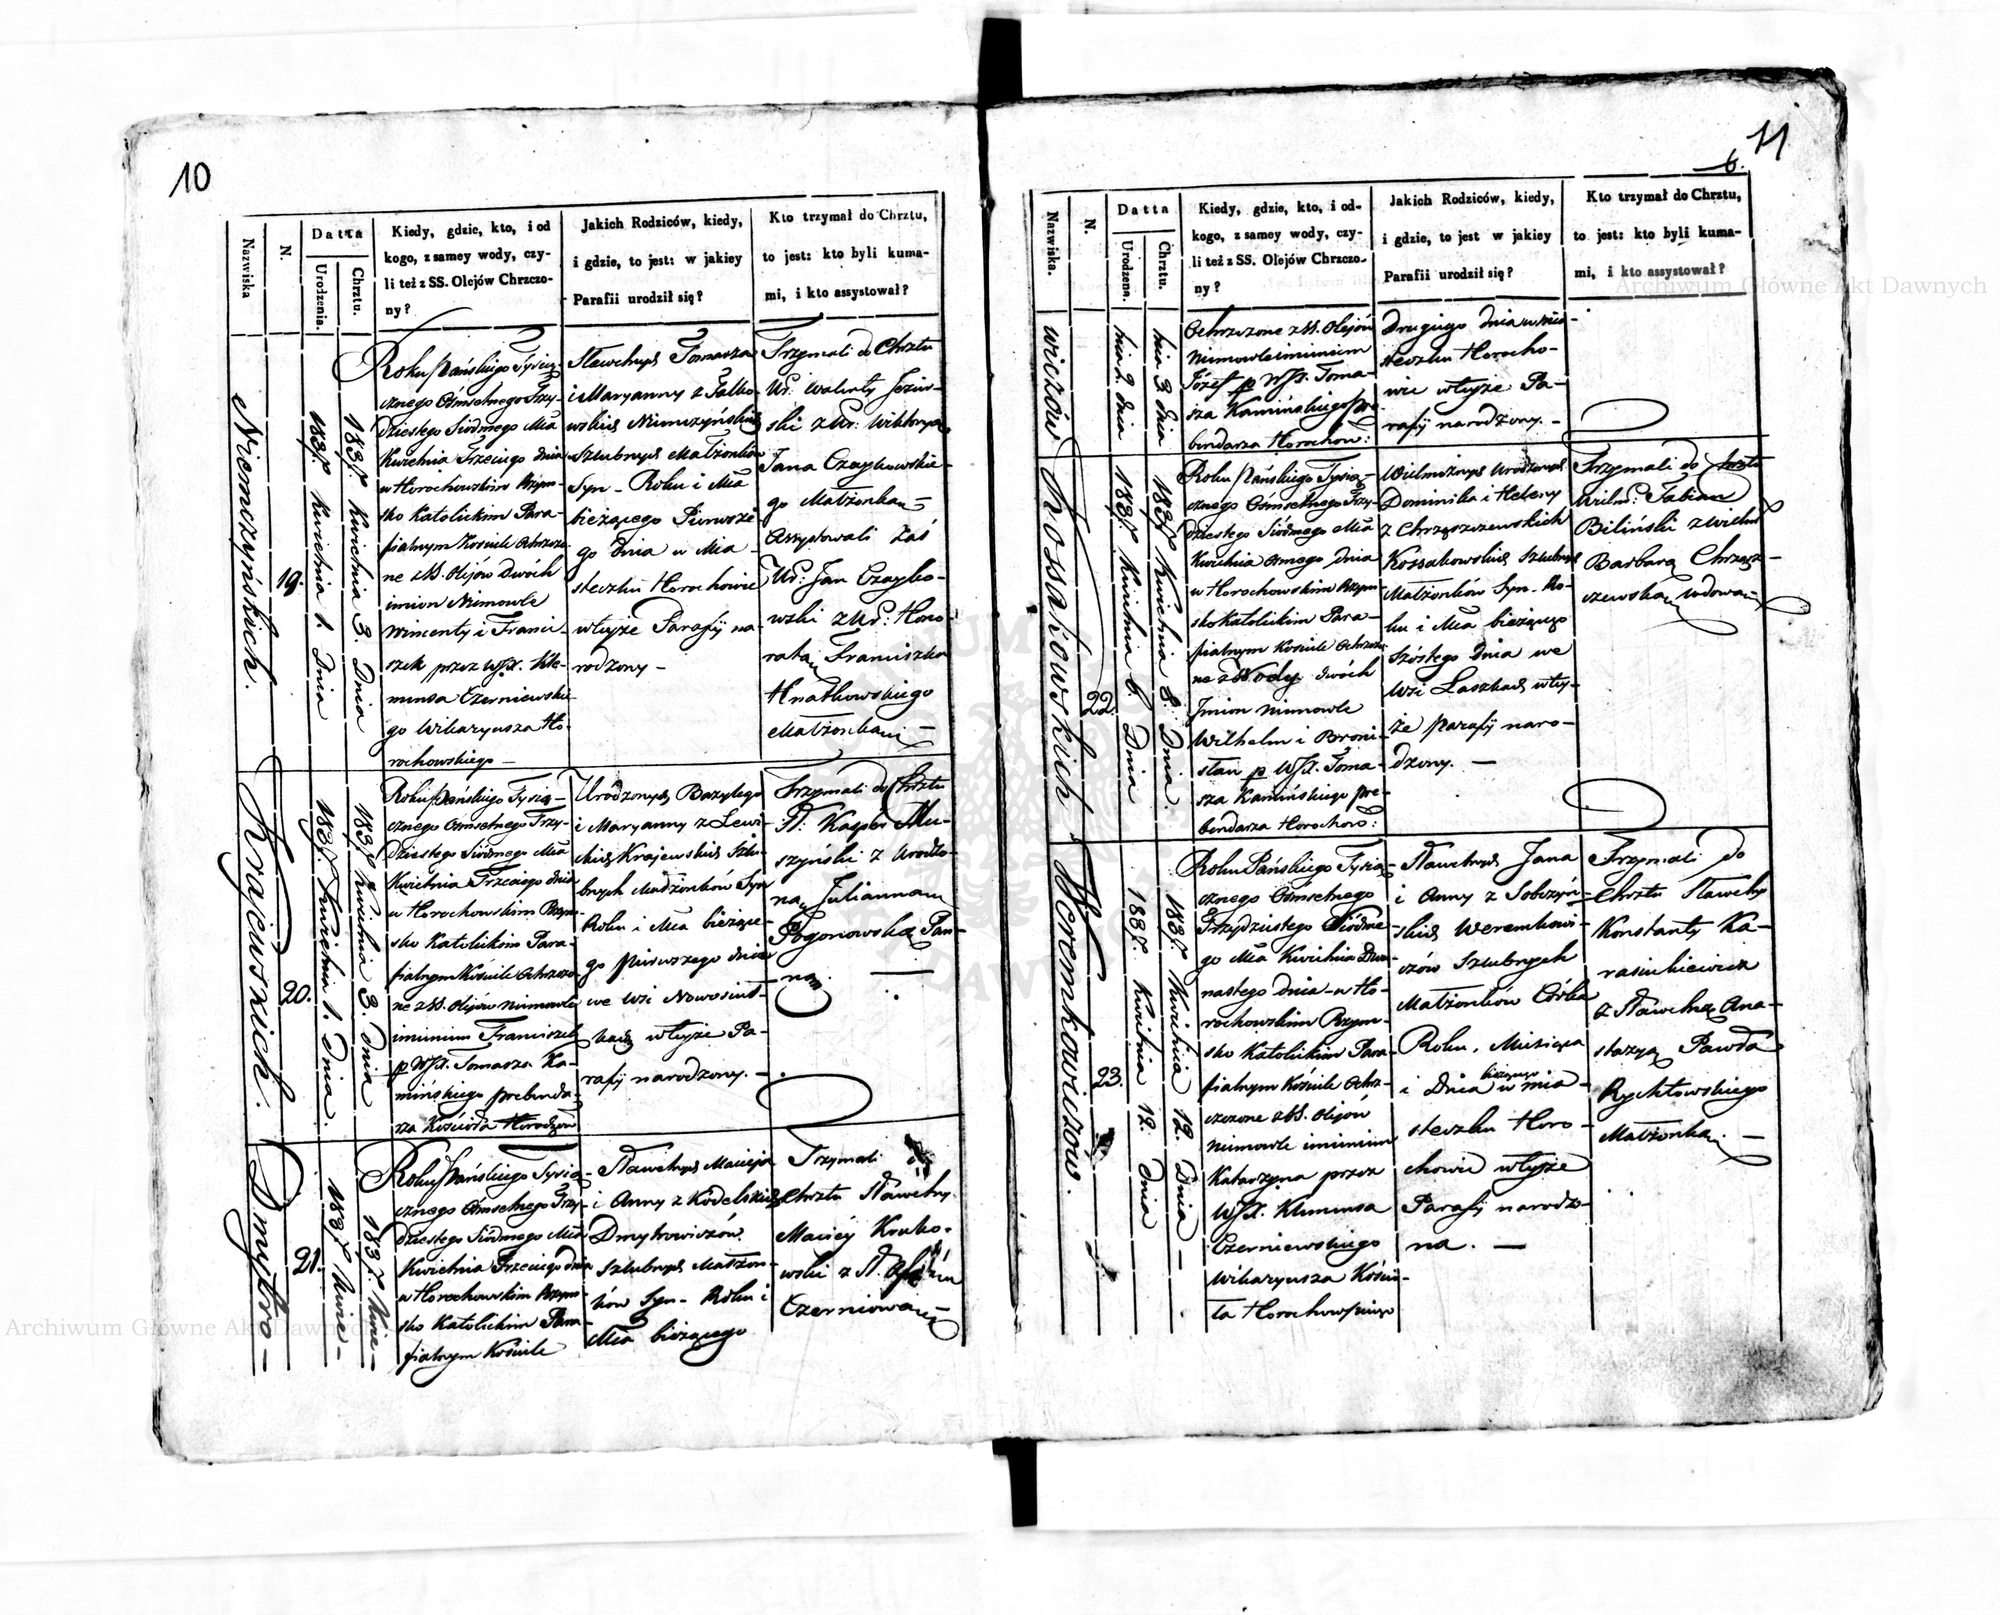 10
Nazwiska
N.
Datta
Urodzenia.
Chrztu.
Kiedy, gdzie, kto, i od
kogo, z samey wody, czy-
li też z SS. Olejów Chrzczo-
ny?
Jakich Rodziców, kiedy,
i gdzie, to jest: w jakiey
Parafii urodził się?
Kto trzymał do Chrztu,
to jest: kto byli kuma-
mi, i kto assystował?
Niemczyńskich.
19.
1837. Kwietnia 1. Dnia
1837. Kwietnia 3. Dnia
Roku Pańskiego Tysią-
cznego Ośmsetnego Trzy-
dziestego Siódmego Mca
Kwietnia Trzeciego dnia
w Horochowskim Rzym-
sko Katolickim Para-
fialnym Kościele Ochrzczo-
ne z SS. Olejów Dwóch
imion Niemowle
Wincenty i Franci-
szek przez WJX. Kle-
mensa Czerniewskie
go Wikaryusza Ho-
rochowskiego
Sławetnych Tomasza
i Maryanny z Falko-
wskich Niemczyńskich
Szlubnych Małżonków
Syn - Roku i Mca
bieżącego Pierwsze
go dnia w Mia-
steczku Horochowie
w teyże Parafij na-
rodzony -
Trzymali do Chrztu
Ur. Walenty Jezier-
ski z Ur: Wiktoryą
Jana Czaykowskie-
go Małżonką
Assystowali Zaś
Ur: Jan Czayko-
wski z Ur: Hono-
ratą Franciszka
Hnatkowskiego
Małżonką
Krajewskich.
20.
1837. Kwietnia 1. Dnia.
1837 Kwietnia 3. Dnia
Roku Pańskiego Tysią-
cznego Ośmsetnego Trzy-
Dziestego Siódmego Mca
Kwietnia Trzeciego dnia
w Horochowskim Rzym-
sko Katolickim Para-
fialnym Kościele Ochrzczo-
ne z SS. Olejów niemowle
imieniem Franciszek
p WJX. Tomasza Ka-
mińskiego prebenda-
rza Kościoła
Urodzonych Bazylego
i Maryanny z Lewi-
ckich Krajewskich Szlu-
bnych Małżonków Syn
Roku i Mca bieżące-
go pierwszego dnia
we Wsi Nowosiół-
kach w teyże Pa-
rafij narodzony. -
Trzymali do Chrztu
Kasper Mu-
szyński z Urodzo-
ną Juliannam
Pogonowską Pan-
ną
Dmytro-
21.
1837 Kwie-
1837. Kwie-
Roku Pańskiego Tysią-
cznego Ośmsetnego Trzy-
dziestego Siódmego Mca
Kwietnia Trzeciego dnia
w Horochowskim Rzym-
sko Katolickim Para-
fialnym Kościele
Sławetnych Macieja
i Anny z Kodelskich
Dmytrowiczów
Szlubnych Małżon-
ków Syn - Roku i
Mca bieżącego
Trzymali
Chrztu Sławetny
Maciéy
Czerniową
11
6.
Nazwiska.
N.
Datta
Urodzenia.
Chrztu.
Kiedy, gdzie, kto, i od-
kogo, z samey wody, czy-
li też z SS. Olejów Chrzczo-
ny?
Jakich Rodziców, kiedy,
i gdzie, to jest w jakiey
Parafii urodził się?
Kto trzymał do Chrztu,
to jest: kto byli kuma-
mi, i kto assystował?
wiczów
tnia 2. dnia
tnia 3 dnia
Ochrzczone z SS. Olejów
Niemowle imieniem
Józef p WJX. Toma-
sza Kamińskiego pre-
bendarza Horochow:
Drugiego dnia w mia-
steczku Horocho-
wie w teyże Pa-
rafij narodzony. -
Kossakowskich
22.
1837. Kwietnia 6. Dnia
1837 Kwietnia 8. Dnia.
Roku Pańskiego Tysią-
cznego Ośmsetnego Trzy-
dziestego Siódmego Mca
Kwietnia osmego dnia
w Horochowskim Rzym-
sko Katolickim Para-
fialnym Kościele Ochrzczo-
ne z Wody dwóch
Imion niemowle
Wilhelm i Broni-
sław p WJX. Toma-
sza Kamińskiego pre-
bendarza Horochow:
Wielmożnych Urodzonych
Dominika i Heleny
z Chrząszczewskich
Kossakowskich Szlubnych
Małżonków Syn. Ro-
ku i Mca bieżącego
Szóstego dnia we
Wsi Łaszkach w tey-
że parafij naro-
dzony. -
Trzymali do Chrztu
Wielm: Fabian
Biliński z Wielm
Barbarą Chrząsz-
czewską wdową
Weremkowiczów.
23.
1837. Kwietnia 12. Dnia
1837. Kwietnia 12. Dnia -
Roku Pańskiego Tysią-
cznego Ośmsetnego
Trzydziestego Siódme-
go Mca Kwietnia Dwu-
nastego dnia w Ho-
rochowskim Rzym-
sko Katolickim Para-
fialnym Kościele Ochrz-
czone z SS. Olejów
niemowle imieniem
Katarzyna przez
WJX. Klemensa
Czerniewskiego
Wikaryusza Kościo-
ła Horochowskiego
Sławetnych Jana
i Anny z Sobczyń-
skich Weremkowi-
czów Szlubnych
Małżonków Córka
Roku, Miesiąca
i Dnia bieżącego w mia-
steczku Horo-
chowie w teyże
Parafij narodzo-
na. -
Trzymali do
Chrztu Sławetny
Konstanty Ka-
rasinkiewicz
z Sławetną Ana-
stazyą Pawła
Rychtowskiego
Małżonką. -
Archiwum Główne Akt Dawnych
Archiwum Główne Akt Dawnych